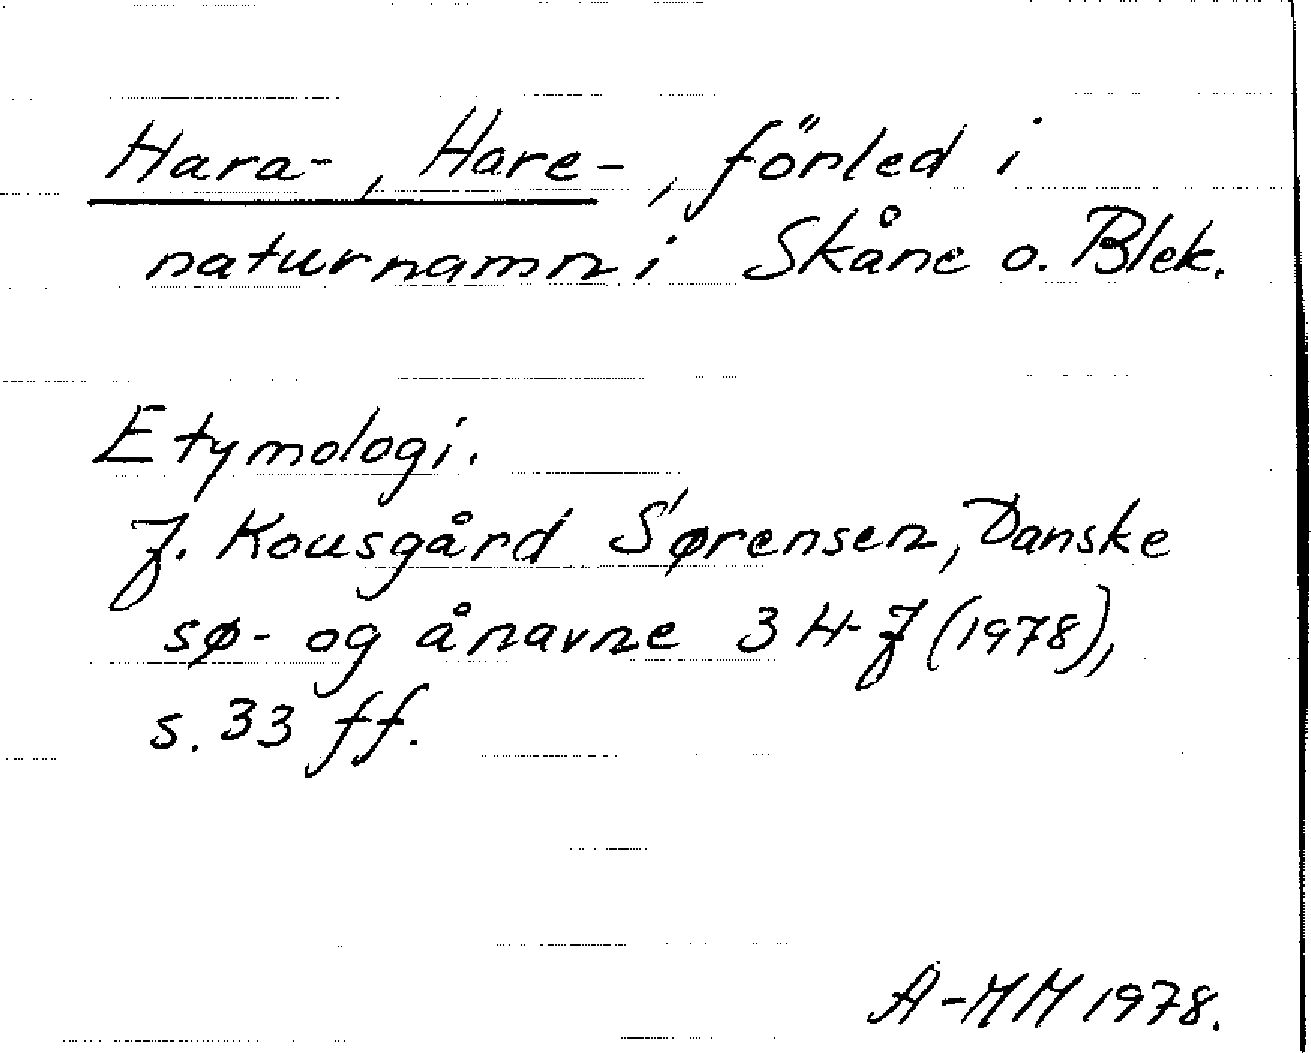 Hara-, Hare-, förled i
naturnamn i Skåne o. Blek.
Etymologi.
J. Kousgård Sørensen, Danske
sø- og ånavne 3 H-J (1978),
s. 33 ff.
A-MM 1978.